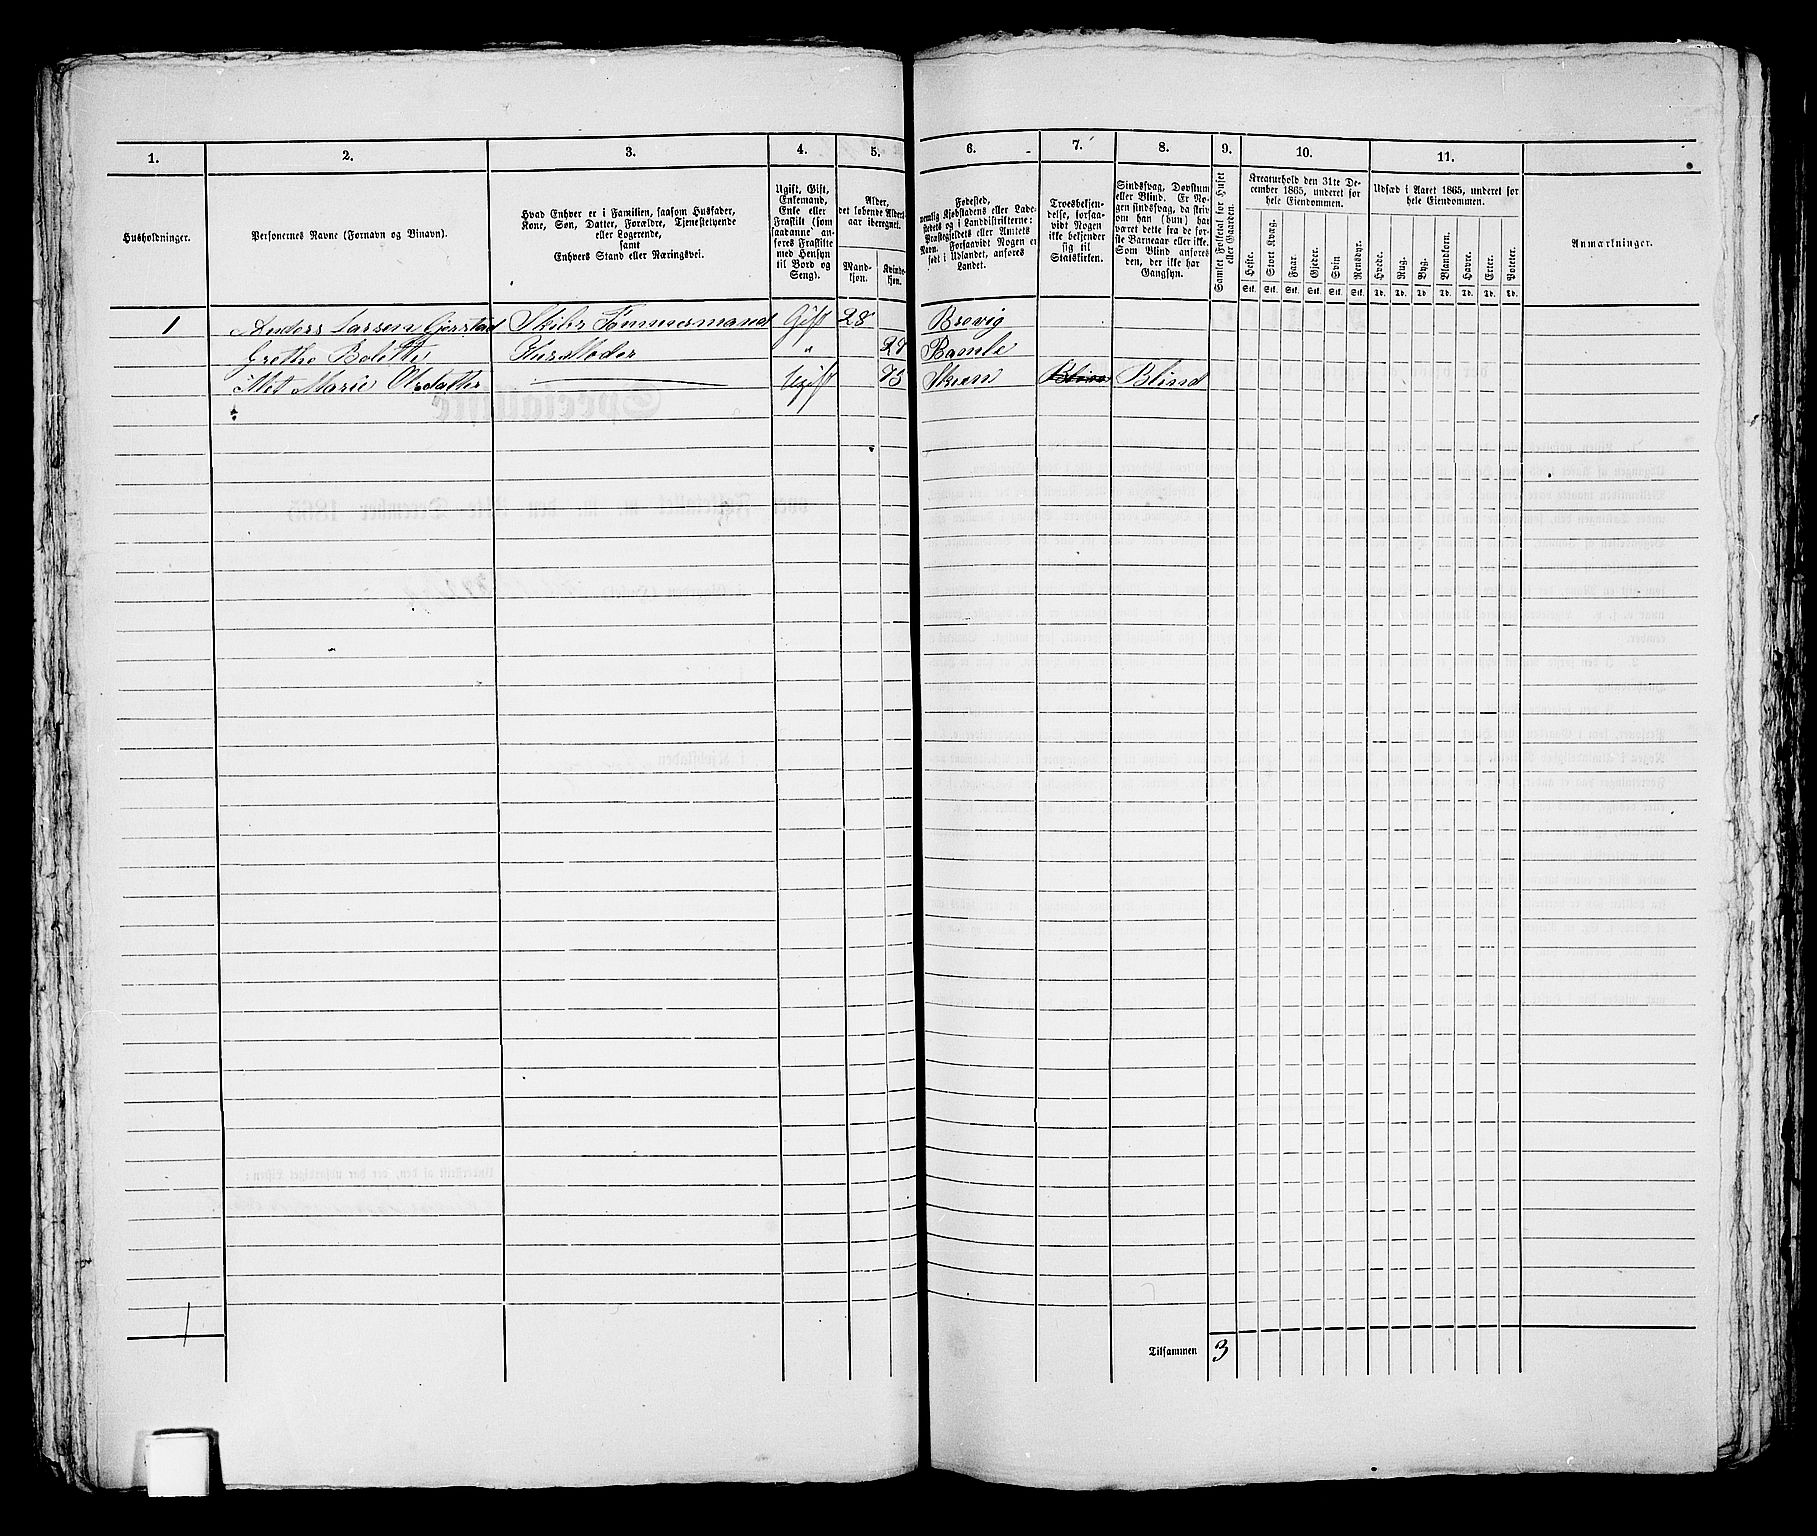 1. 2. 3. 4. 5. 6. 7. 8. 9. 10. 11.
Husholdninger.
Personernes Navne (Fornavn og Binavn).
Hvad Enhver er i Familien, saasom Husfader,
Kone, Søn, Datter, Forældre, Tjenestetyende
eller Logerende,
samt
Enhvers Stand eller Næringsvei.
Ugift, Gift,
Enkemand,
Enke eller
Fraskilt (som
saadanne anføres
Fraskilte
med Hensyn
til Bord og
Seng).
Alder,
det løbende Alders-
aar iberegnet.
Mand-
kjøn.
Kvinde-
kjøn.
Fødested,
nemlig Kjøbstadens eller Lade-
stedets og i Landdistrikterne:
Præstegjeldets eller Amtets
Navn. Forsaavidt Nogen er
født i Udlandet, anføres
Landet.
Troesbekjen-
delse, forsaa-
vidt Nogen
ikke bekjender
sig til
Statskirken.
Sindssvag, Døvstum
eller Blind. Er No-
gen sindssvag, da skriv
om han (hun) har
været dette fra de før-
ste Barneaar eller ikke.
Som Blind anføres
den, der ikke har
Gangsyn.
Samlet Folketal for Huset
eller Gaarden.
Kreaturhold den 31te De-
cember 1865, underet for
hele Eiendommen.
Heste. Stort Kvæg. Faar. Gjeder. Svin Rensdyr.
Stk. Stk. Stk. Stk. Stk. Stk.
Udsæd i Aaret 1865, underet for
hele Eiendommen.
Hvede. Rug. Byg. Blandkorn. Havre. Erter. Poteter.
Td. Td. Td Td. Td. Td. Td.
Anmærkninger.
1 Anders Larsen Gjerstad Skibs Tømmermand Gift 28 Brevig
Grethe Bolette Husmoder " 27 Bamle
Met Marie Olsdatter Ugift 73 Skien Blind Blind
1
Tilsammen 3